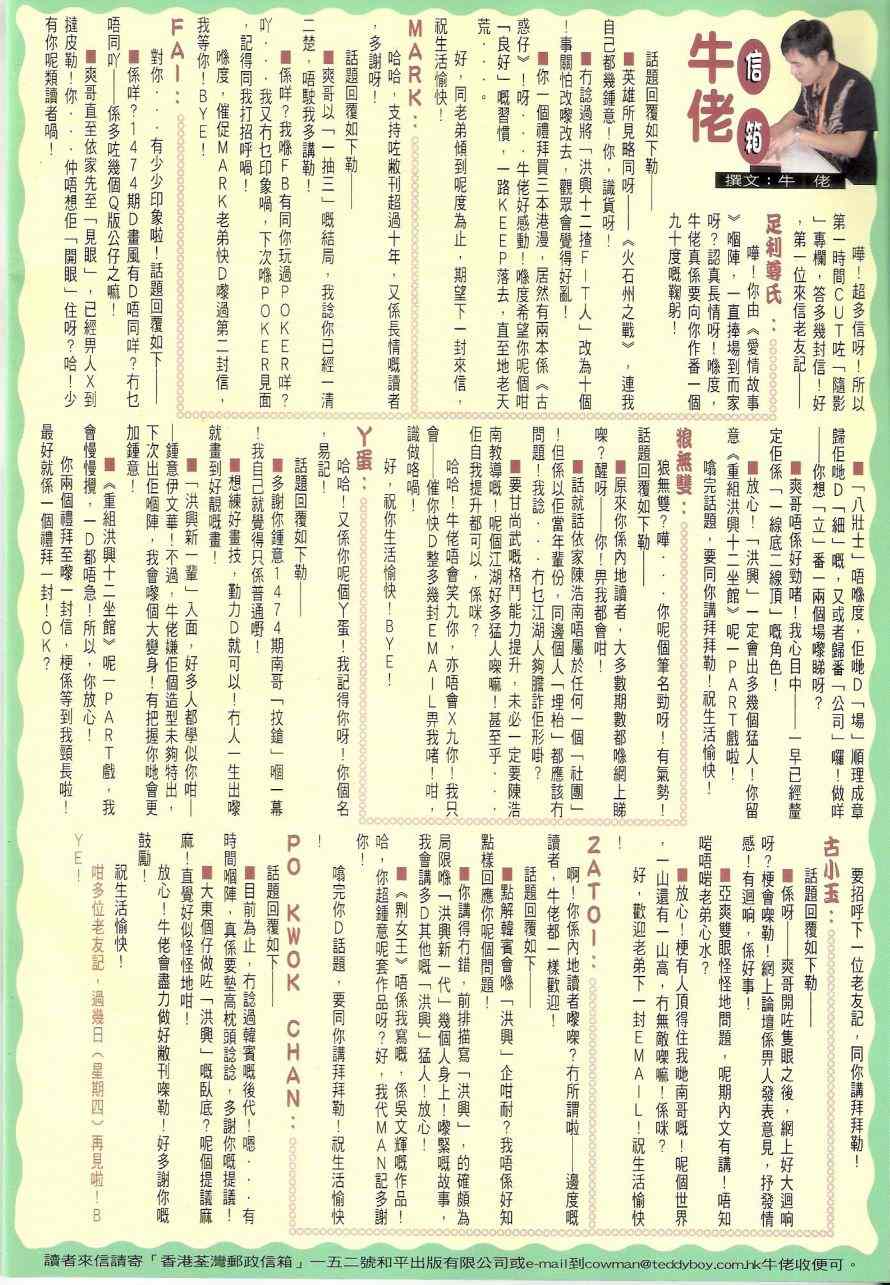 牛佬
信箱
撰文：牛 佬
嘩！超多信呀！所以
第一時間ＣＵＴ咗「隨影
」專欄，答多幾封信！好
，第一位來信老友記——
足利尊氏：
嘩！你由《愛情故事
》嗰陣，一直捧場到而家
呀？認真長情呀！喺度，
牛佬真係要向你作番一個
九十度嘅鞠躬！
話題回覆如下勒——
■英雄所見略同呀——《火石州之戰》，連我
自己都幾鍾意！你，識貨呀！
■冇諗過將「洪興十二揸ＦＩＴ人」改為十個
！事關怕改嚟改去，觀眾會覺得好亂！
■你一個禮拜買三本港漫，居然有兩本係《古
惑仔》！呀．．．牛佬好感動！喺度希望你呢個咁
「良好」嘅習慣，一路ＫＥＥＰ落去，直至地老天
荒．．．。
好，同老弟傾到呢度為止，期望下一封來信，
祝生活愉快！
ＭＡＲＫ：
哈哈，支持咗敝刊超過十年，又係長情嘅讀者
，多謝呀！
話題回覆如下勒——
■爽哥以「一抽三」嘅結局，我諗你已經一清
二楚，唔駛我多講勒！
■係咩？我喺ＦＢ有同你玩過ＰＯＫＥＲ咩？
吖．．．我又冇乜印象喎，下次喺ＰＯＫＥＲ見面
，記得同我打招呼喎！
喺度，催促ＭＡＲＫ老弟快Ｄ嚟過第二封信，
我等你！ＢＹＥ！
ＦＡＩ：
對你．．．有少少印象啦！話題回覆如下——
■係咩？１４７４期Ｄ畫風有Ｄ唔同咩？冇乜
唔同吖——係多咗幾個Ｑ版公仔之嘛！
■爽哥直至依家先至「見眼」，已經畀人Ｘ到
撻皮勒！你．．．仲唔想佢「開眼」住呀？哈！少
有你呢類讀者喎！
■「八壯士」唔喺度，佢哋Ｄ「場」順理成章
歸佢哋Ｄ「細」嘅，又或者歸番「公司」囉！做咩
——你想「立」番一兩個場嚟睇呀？
■爽哥唔係好勁啫！我心目中——一早已經釐
定佢係「一線底二線頂」嘅角色！
■放心！「洪興」一定會出多幾個猛人！你留
意《重組洪興十二坐館》呢一ＰＡＲＴ戲啦！
噏完話題，要同你講拜拜勒！祝生活愉快！
狼無雙：
狼無雙？嘩．．．你呢個筆名勁呀！有氣勢！
話題回覆如下勒——
■原來你係內地讀者，大多數期數都喺網上睇
㗎？醒呀——你！畀我都會咁！
■話就話依家陳浩南唔屬於任何一個「社團」
！但係以佢當年輩份，同邊個人「埋枱」都應該冇
問題！我諗．．．冇乜江湖人夠膽詐佢形啩？
■要甘尚武嘅格鬥能力提升，未必一定要陳浩
南教導嘅！呢個江湖好多猛人㗎嘛！甚至乎．．．
佢自我提升都可以，係咪？
哈哈！牛佬唔會笑九你，亦唔會Ｘ九你！我只
會——催你快Ｄ整多幾封ＥＭＡＩＬ畀我啫！咁，
識做咯喎！
好，祝你生活愉快！ＢＹＥ！
丫蛋：
哈哈！又係你呢個丫蛋！我記得你呀！你個名
，易記！
話題回覆如下勒——
■多謝你鍾意１４７４期南哥「抆鎗」嗰一幕
！我自己就覺得只係普通嘢！
■想練好畫技，勤力Ｄ就可以！冇人一生出嚟
就畫到好靚嘅畫！
■「洪興新一輩」入面，好多人都學似你咁—
—鍾意伊文華！不過，牛佬嫌佢個造型未夠特出，
下次出佢嗰陣，我會嚟個大變身！有把握你哋會更
加鍾意！
■《重組洪興十二坐館》呢一ＰＡＲＴ戲，我
會慢慢攪，一Ｄ都唔急！所以，你放心！
你兩個禮拜至嚟一封信，梗係等到我頸長啦！
最好就係一個禮拜一封！ＯＫ？
要招呼下一位老友記，同你講拜拜勒！
古小玉：
話題回覆如下勒——
■係呀——爽哥開咗隻眼之後，網上好大迴响
呀？梗會㗎勒！網上論壇係畀人發表意見，抒發情
感！有迴响，係好事！
■亞爽雙眼怪怪地問題，呢期內文有講！唔知
啱唔啱老弟心水？
■放心！梗有人頂得住我哋南哥嘅！呢個世界
，一山還有一山高，冇無敵㗎嘛！係咪？
好，歡迎老弟下一封ＥＭＡＩＬ！祝生活愉快
！
ＺＡＴＯＩ：
啊！你係內地讀者嚟㗎？冇所謂啦——邊度嘅
讀者，牛佬都一樣歡迎！
話題回覆如下——
■點解韓賓會喺「洪興」企咁耐？我唔係好知
點樣回應你呢個問題！
■你講得冇錯，前排描寫「洪興」，的確頗為
局限喺「洪興新一代」幾個人身上！嚟緊嘅故事，
我會講多Ｄ其他嘅「洪興」猛人！放心！
■《刜女王》唔係我寫嘅，係吳文輝嘅作品！
哈，你超鍾意呢套作品呀？好，我代ＭＡＮ記多謝
你！
噏完你Ｄ話題，要同你講拜拜勒！祝生活愉快
！
ＰＯ ＫＷＯＫ ＣＨＡＮ：
話題回覆如下勒——
■目前為止，冇諗過韓賓嘅後代！嗯．．．有
時間嗰陣，真係要墊高枕頭諗諗，多謝你嘅提議！
■大東個仔做咗「洪興」嘅臥底？呢個提議麻
麻！直覺好似怪怪地咁！
放心！牛佬會盡力做好敝刊㗎勒！好多謝你嘅
鼓勵！
祝生活愉快！
咁多位老友記，過幾日（星期四）再見啦！Ｂ
ＹＥ！
讀者來信請寄「香港荃灣郵政信箱」一五二號和平出版有限公司或e-mail到cowman@teddyboy.com.hk牛佬收便可。